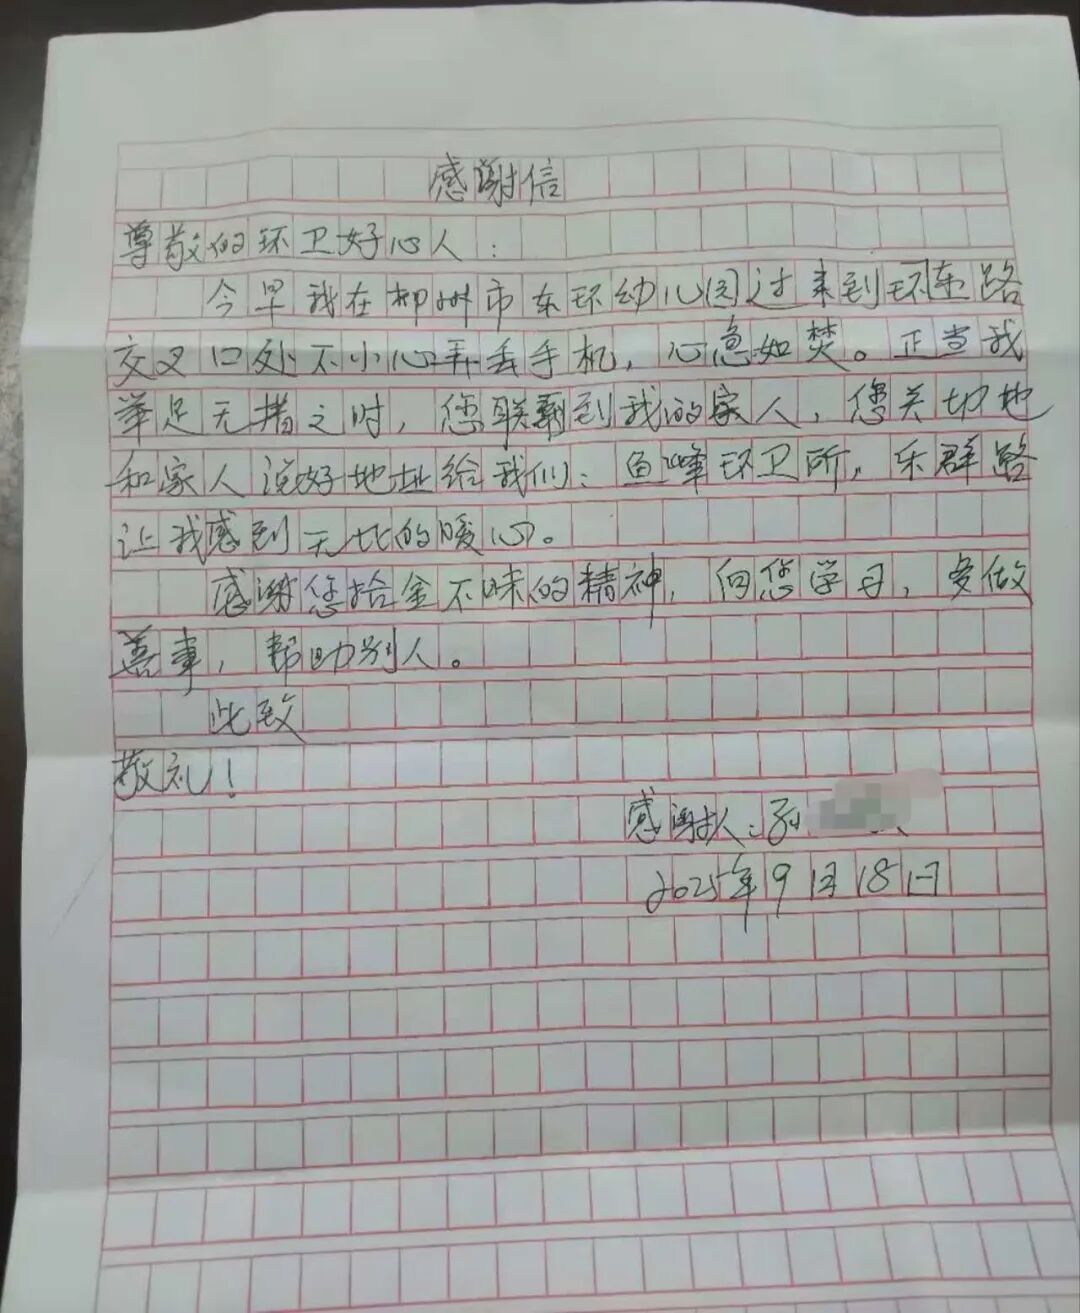 感谢信
尊敬的环卫好心人：
今早我在柳州市东环幼儿园过来到环东路
交叉口处不小心弄丢手机，心急如焚。正当我
举足无措之时，您联系到我的家人，您关切地
和家人说好地址给我们：鱼峰环卫所，乐群路
让我感到无比的暖心。
感谢您拾金不昧的精神，向您学习，多做
善事，帮助别人。
此致
敬礼！
感谢人：孙
2025年9月18日